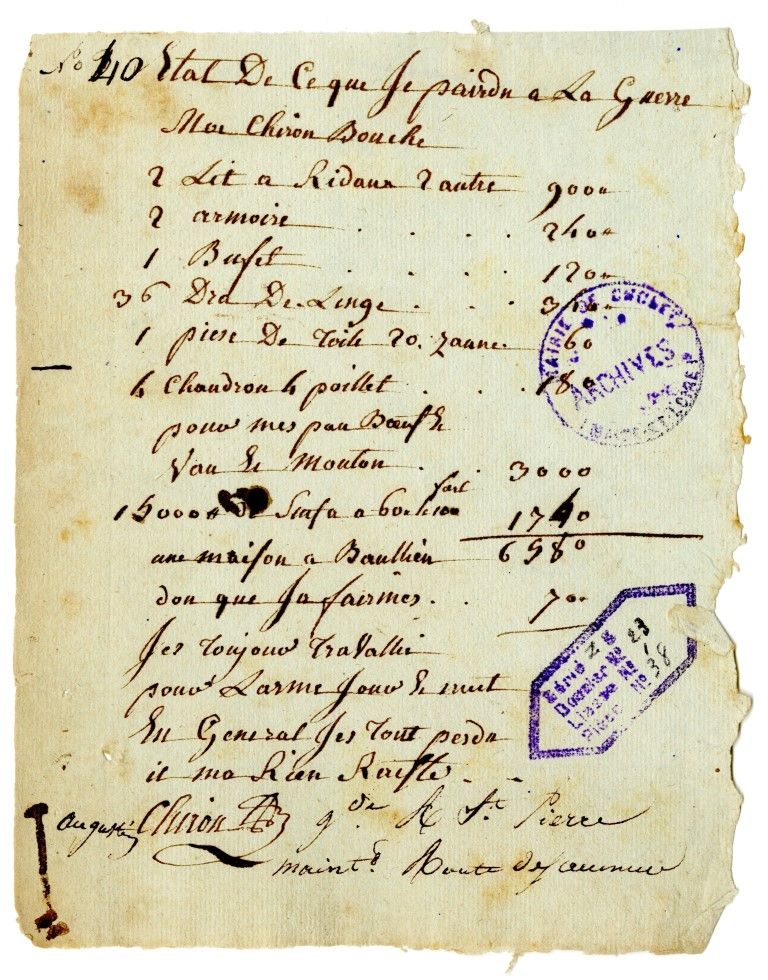 No 40 Etat De Ce que Je pairdu a La Guerre
Moe Chiron Bouché
2 Lit a Ridaux 2 autre 900"
2 armoire . . . . 240"
1 Bufet . . . . 120"
36 Dra De Linge . . .
1 piese De Toile 20. zaune. 60
4 Chaudron 4 poillet . . . 180
pour mes pau Bœufs
Vau Le Mouton . . 3000
fait
15000 de a 1740
une maison a Baullieu 6580
don que Ja fairmes . . 700
Jes Toujour Travallié
pour Larme Jour Le nuit
En General Jes Tout perdu
it ma Rien Raiste . . .
augustin Chiron gde R St Pierre
maintt Route de Saumur
MAIRIE DE CHOLET
ARCHIVES
(MAINE-ET-LOIRE)
Série Z 8
Dossier No 23
Liasse No 1
Pièce No 38